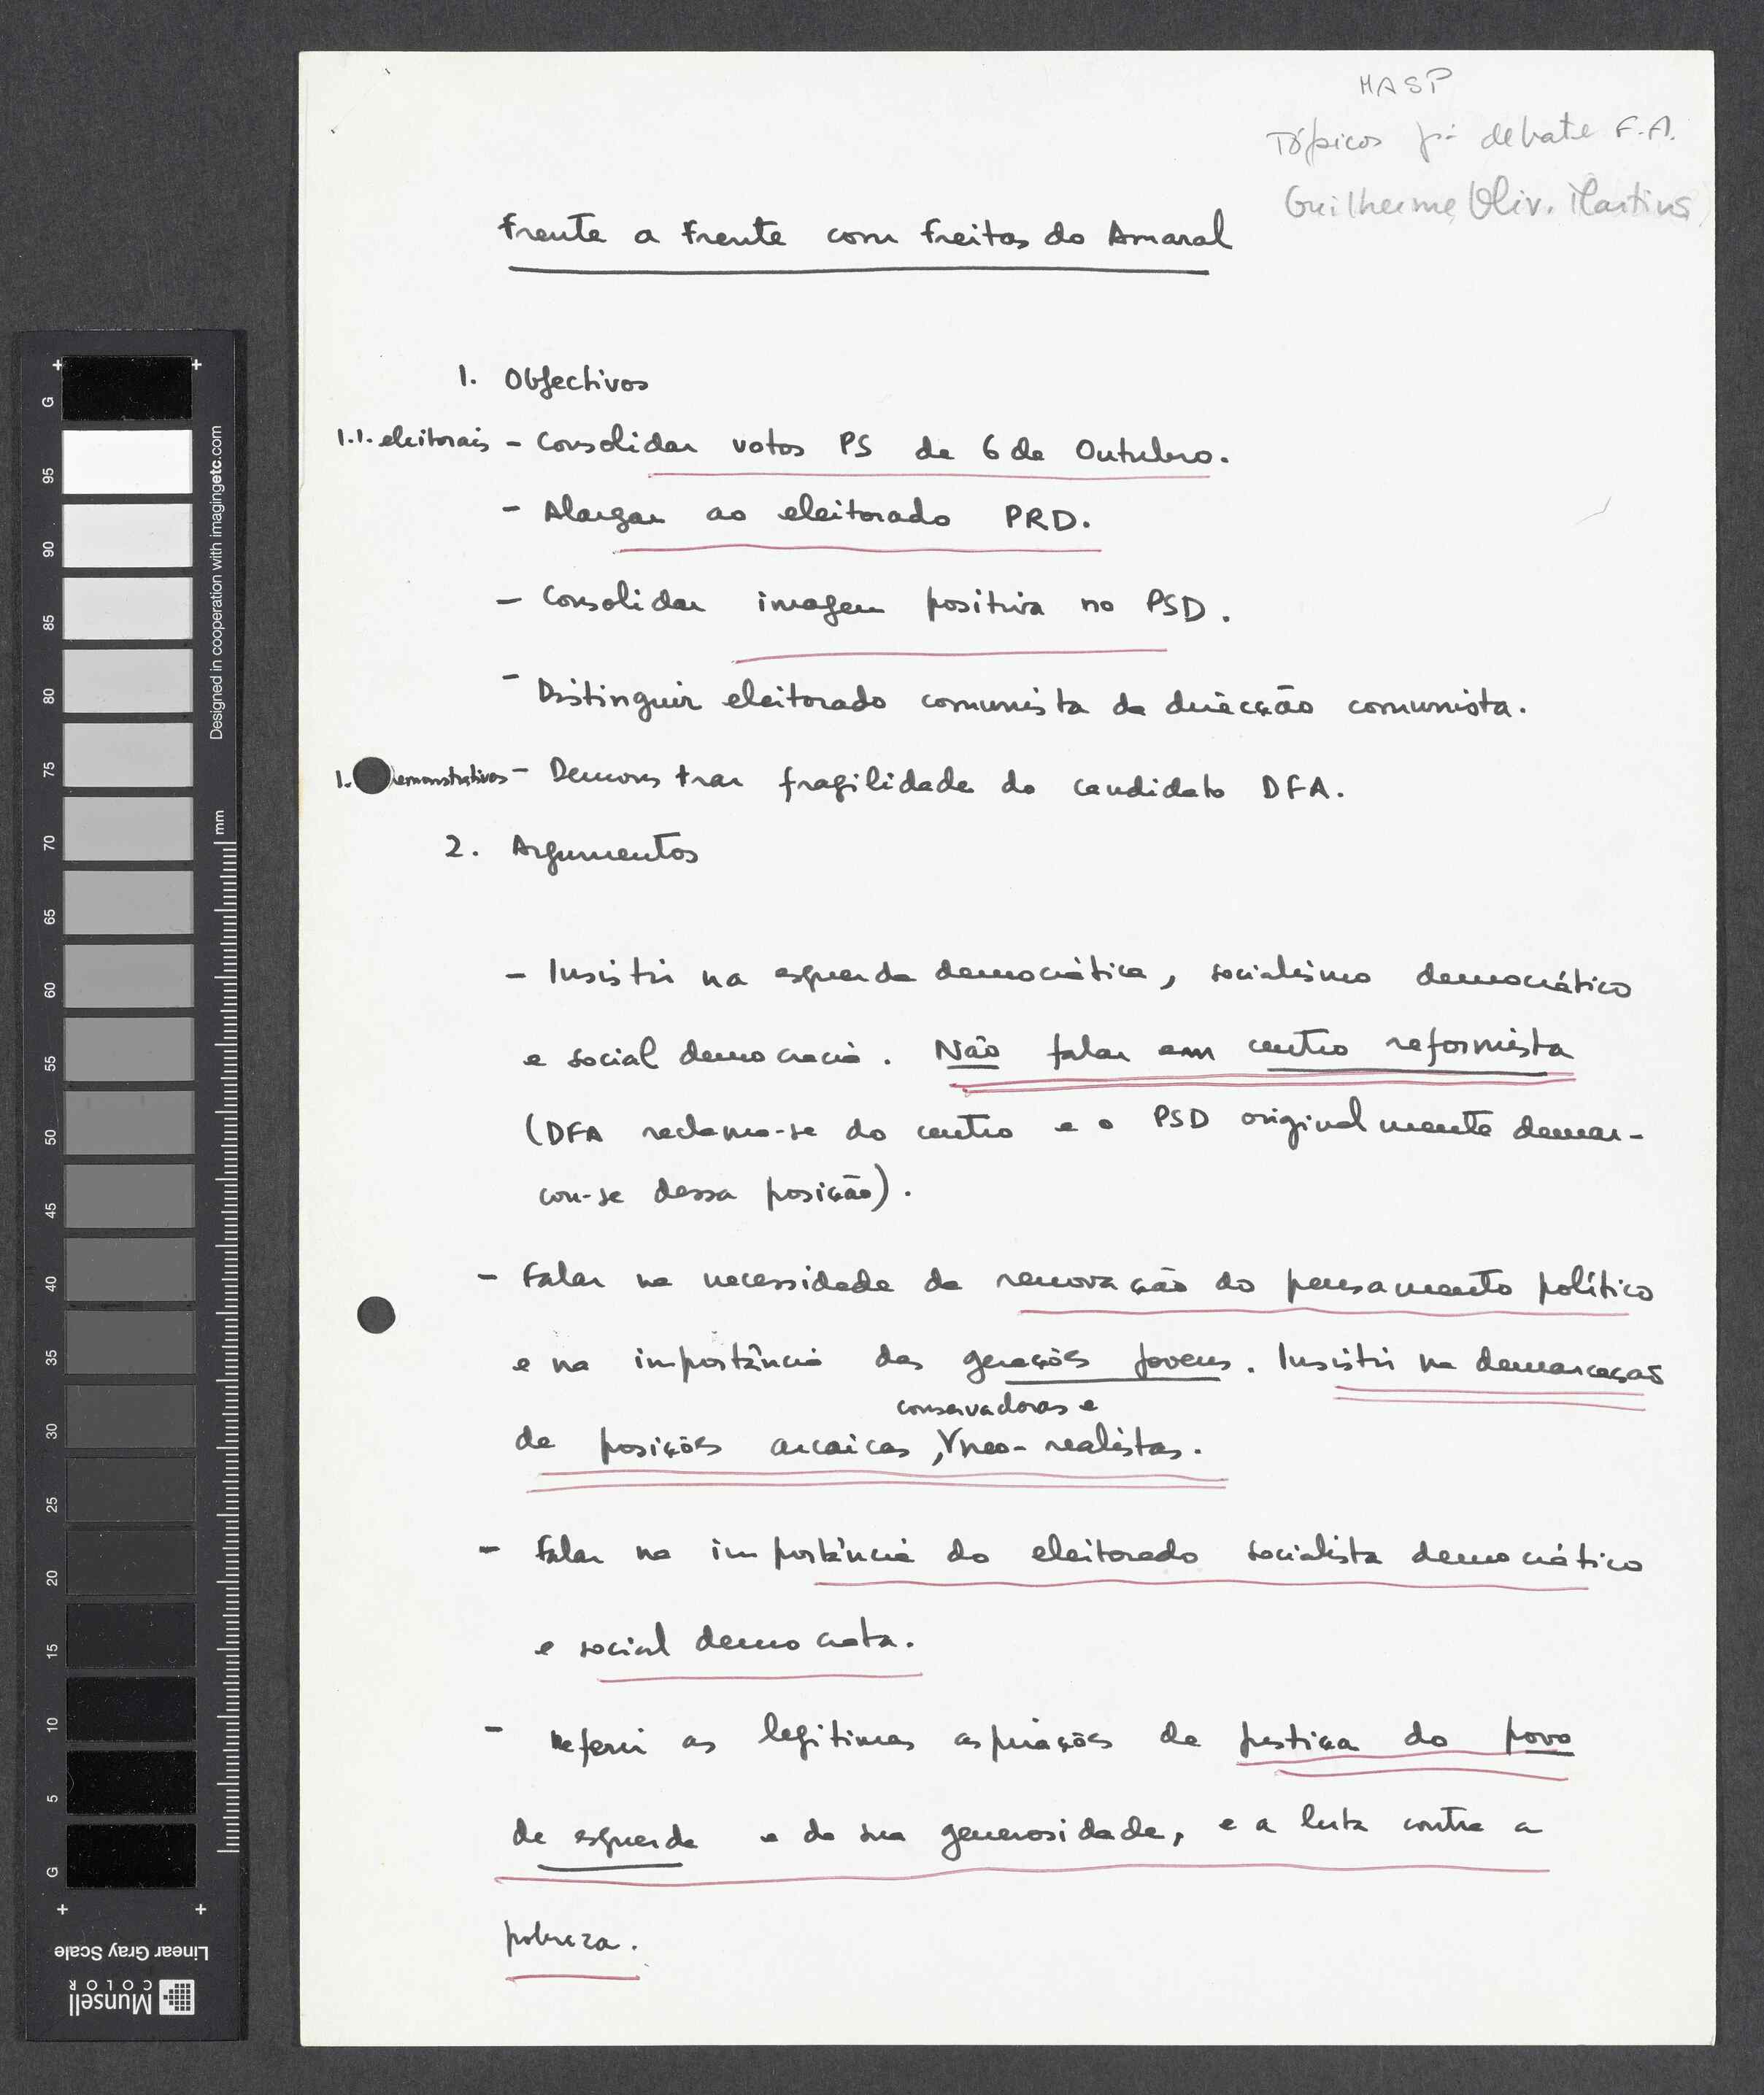 MASP
Tópicos pª debate F.A.
Guilherme Oliv. Martins
Frente a Frente com Freitas do Amaral
1. Objectivos
1.1. eleitorais - Consolidar votos PS de 6 de Outubro.
- Alargar ao eleitorado PRD.
- Consolidar imagem positiva no PSD.
- Distinguir eleitorado comunista da direcção comunista.
1. emonstrativos - Demonstrar fragilidade do candidato DFA.
2. Argumentos
- Insistir na esquerda democrática, socialismo democrático
e social democracia. Não falar em centro reformista
(DFA reclama-se do centro e o PSD originalmente demar-
cou-se dessa posição).
- Falar na necessidade da renovação do pensamento político
e na importância das gerações jovens. Insistir na demarcação
conservadoras e
de posições arcaicas, neo-realistas.
- Falar na importância do eleitorado socialista democrático
e social democrata.
- Referir as legítimas aspirações de justiça do povo
de esquerda e da sua generosidade, e a luta contra a
pobreza.
G
95
90
85
80
75
70
65
60
55
50
45
40
35
30
25
20
15
10
5
G
mm
Designed in cooperation with imagingetc.com
Linear Gray Scale
Munsell
COLOR